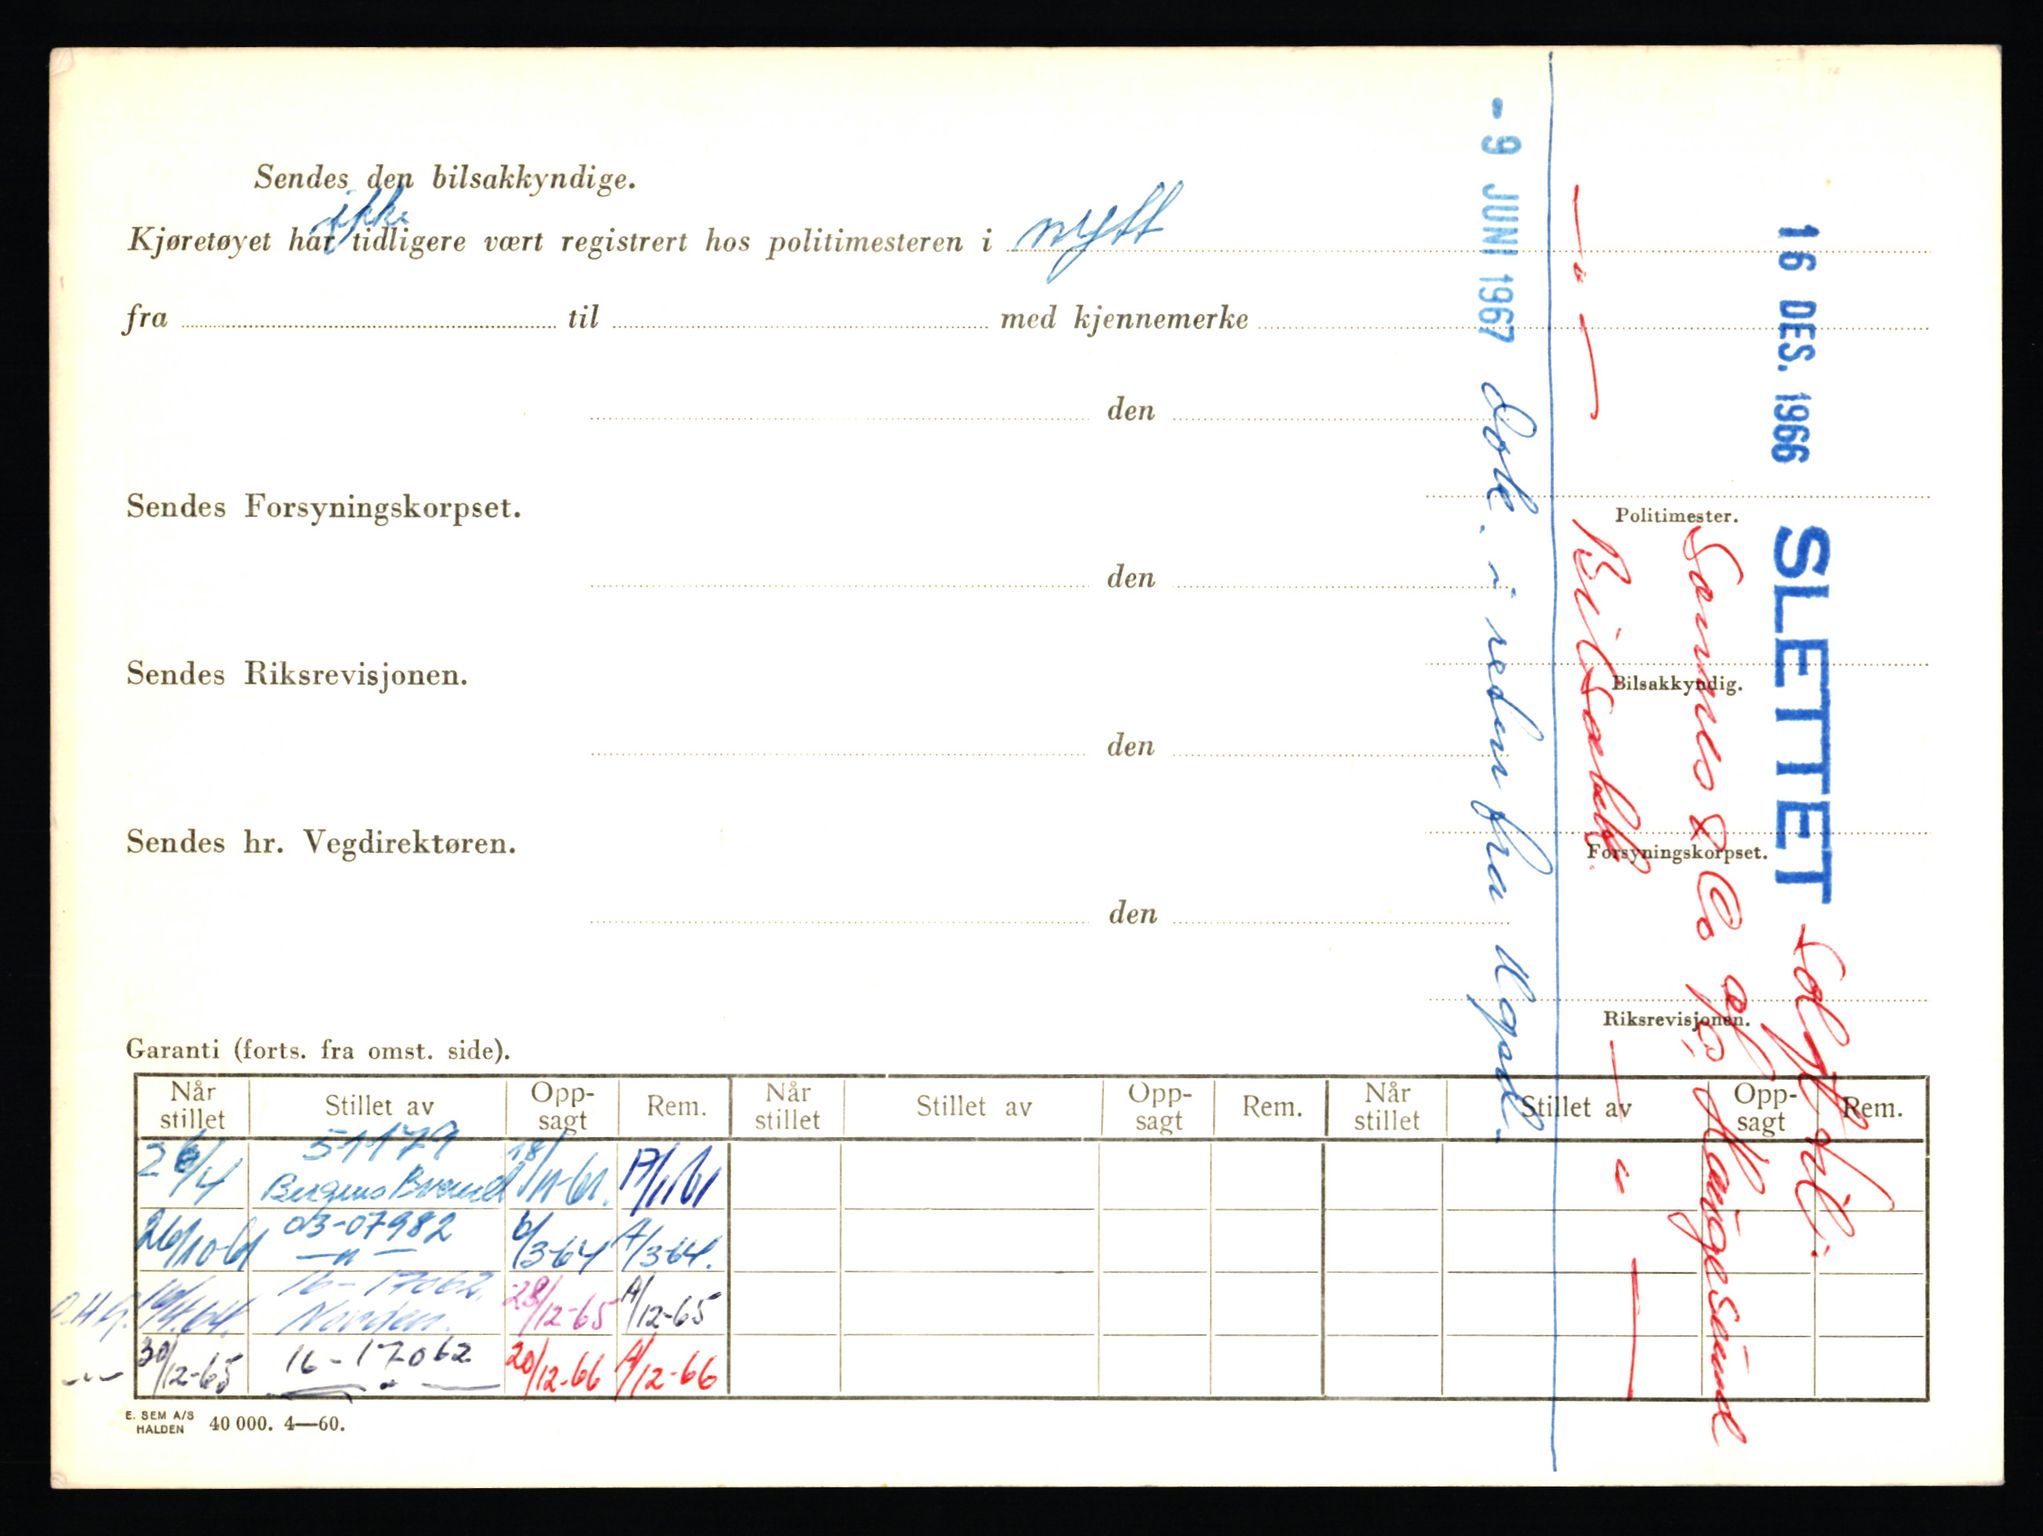 Sendes den bilsakkyndige.
ikke
Kjøretøyet har tidligere vært registrert hos politimesteren i nytt
fra til med kjennemerke
den
Politimester.
Sendes Forsyningskorpset.
den
Bilsakkyndig.
Sendes Riksrevisjonen.
den
Forsyningskorpset.
Sendes hr. Vegdirektøren.
den
Riksrevisjonen.
16 DES. 1966 SLETTET
Sannes & Co Haugesund
Bilsakk.
- 9 JUNI 1967 Dok. i retur fra
Garanti (forts. fra omst. side).
Når stillet Stillet av Opp-sagt Rem. Når stillet Stillet av Opp-sagt Rem. Når stillet Stillet av Opp-sagt Rem.
26/4 51179 18/11-61. 17/11 61
Bergens Brand
26/10-61 03-07982 6/3-64 A/3-64.
— " —
16-17062. 28/12-65 A/12-65
Norden.
30/12-65 16-17062 20/12-66 A/12-66
— " —
E. SEM A/S
HALDEN 40 000. 4—60.